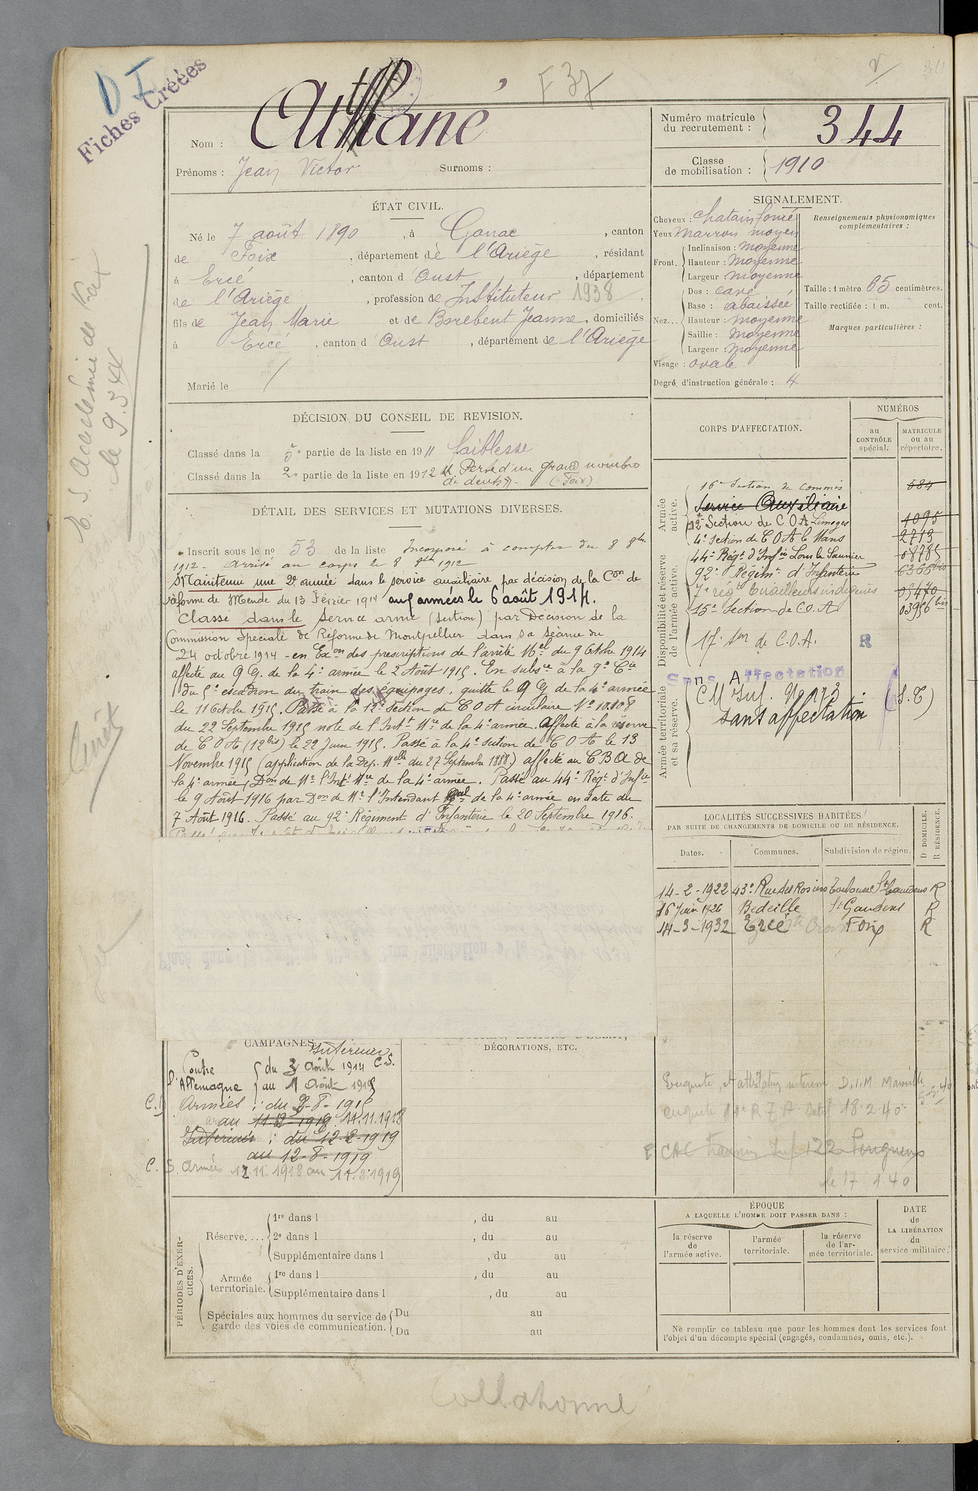 D I
Fiches Créées
F 37
Nom : Athané
Prénoms : Jean Victor Surnoms :
Numéro matricule du recrutement : 344
Classe de mobilisation : 1910
ÉTAT CIVIL.
Né le 7 août 1890, à Ganac, canton
de Foix, département de l'Ariège, résidant
à Ercé, canton d'Oust, département
de l'Ariège, profession de Instituteur 1938
fils de Jean Marie et de Barebent Jeanne, domiciliés
à Ercé, canton d'Oust, département de l'Ariège
Marié le /
SIGNALEMENT.
Cheveux : chatain foncé
Yeux marron moyen
Front. Inclinaison : moyenne
Hauteur : moyenne
Largeur moyenne
Nez... Dos : cavé
Base : abaissée
Hauteur : moyenne
Saillie : moyenne
Largeur moyenne
Visage : ovale
Degré d'instruction générale : 4
Renseignements physionomiques complémentaires :
Taille : 1 mètre 65 centimètres.
Taille rectifiée : 1 m. cent.
Marques particulières :
DÉCISION DU CONSEIL DE REVISION.
Classé dans la 5e partie de la liste en 1911 faiblesse
Classé dans la 2e partie de la liste en 1912 Perte d'un grand nombre
de dents. (Foix)
DÉTAIL DES SERVICES ET MUTATIONS DIVERSES.
Inscrit sous le no 53 de la liste Incorporé à compter du 8 8bre
1912. Arrivé au corps le 8 8bre 1912
Maintenu une 2e année dans le service auxiliaire par décision de la Con de
réforme de Mende du 13 Février 1914 aux armées le 6 août 1914.
Classé dans le service armé (section) par Décision de la
Commission Spéciale de Réforme de Montpellier dans sa séance du
24 octobre 1914 - en Exon des prescriptions de l'arrêté Mel du 9 Octobre 1914
affecté au Q.G. de la 4e armée le 2 Août 1915. En subsce à la 9e Cie
du 5e escadron du train des équipages, quitte le Q G de la 4e armée
le 11 Octobre 1915. Passé à la 12e Section de C O A circulaire No 10.808
du 22 Septembre 1915 note de l'Intt Mre de la 4e armée. Affecté à la réserve
de C O A (12bis) le 22 Juin 1915. Passé à la 4e section de C O A le 13
Novembre 1915 (application de la Dép. Melle du 27 Septembre 1888) affecté au C B A de
la 4e armée, Don de Mr l'Intt Mre de la 4e armée. Passé au 44e Régt d'Infie
le 9 Août 1916 par Don de Mr l'Intendant Gal de la 4e armée en date du
7 Août 1916. Passé au 92e Régiment d'Infanterie le 20 Septembre 1916.
CORPS D'AFFECTATION.
NUMÉROS
au CONTRÔLE spécial.
MATRICULE ou au répertoire.
Armée active.
16e Section de Commis 684
Service Auxiliaire
12e Section de C O A Limoges 4095
4e Section de C O A le Mans 2713
Disponibilité et réserve de l'armée active.
44e Régt d'Infie Lons le Saunier
92e Régimt d'Infanterie
7e régt Tirailleurs indigènes 05470
15e Section de C.O.A. 03956 bis
17e Son de C.O.A. R
Armée territoriale et sa réserve.
Sans Affectation
sans affectation
LOCALITÉS SUCCESSIVES HABITÉES
PAR SUITE DE CHANGEMENTS DE DOMICILE OU DE RÉSIDENCE.
Dates. Communes. Subdivision de région. D DOMICILE. R RÉSIDENCE.
14-2-1922 43e Rue des Rosiers Toulouse St Gaudens R
16 Juin 1926 Bédeille St Gaudens R
14-3-1932 Ercé Foix R
CAMPAGNES.
Intérieur
Contre l'Allemagne du 3 Août 1914 C.S.
au 1 Août 1915
C.D Armées : du 2-8-1915
au 11-2-1919 11.11.1918
Intérieur : du 12-2-1919
au 12-8-1919
C. S. Armées 12 11 1918 au 11.8.1919
DÉCORATIONS, ETC.
18.2.40
le 17 1 40
PÉRIODES D'EXERCICES.
Réserve.... 1re dans l , du au
2e dans l , du au
Supplémentaire dans l , du au
Armée territoriale. 1re dans l , du au
Supplémentaire dans l , du au
Spéciales aux hommes du service de garde des voies de communication. Du au
Du au
ÉPOQUE
A LAQUELLE L'HOMME DOIT PASSER DANS :
la réserve de l'armée active. l'armée territoriale. la réserve de l'armée territoriale.
DATE de LA LIBÉRATION du service militaire.
Ne remplir ce tableau que pour les hommes dont les services font
l'objet d'un décompte spécial (engagés, condamnés, omis, etc.).